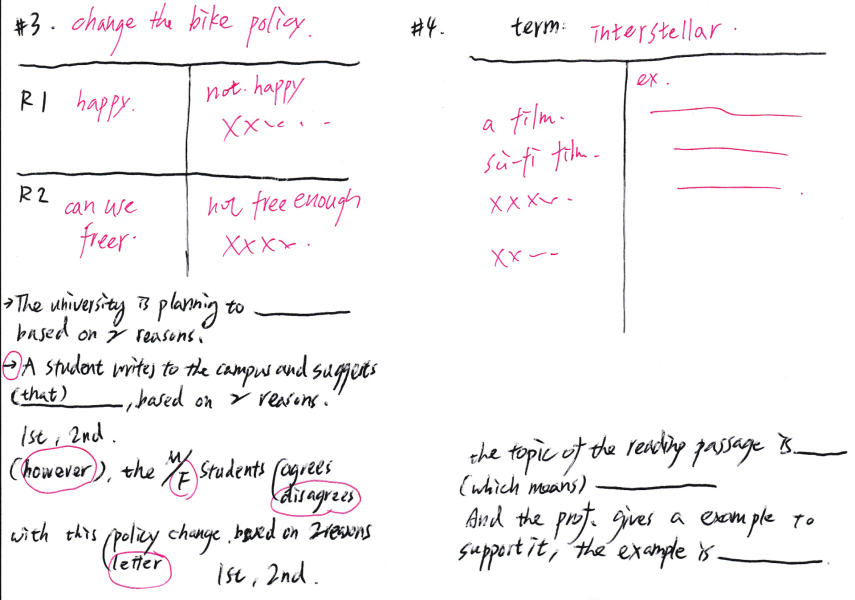 #3. change the bike policy.
R1 happy.
not happy
XX
R2 can use
freer.
not free enough
XXXX.
→The university is planning to ______
based on 2 reasons.
→A student writes to the campus and suggests
(that) ______, based on 2 reasons.
1st, 2nd.
(however), the M/F students agrees
disagrees
with this policy change based on 2 reasons
letter
1st, 2nd.
#4. term: interstellar.
a film.
sci-fi film.
XXXX.
XX
ex.
the topic of the reading passage is ______
(which means) ______
And the prof. gives a example to
support it, the example is ______.